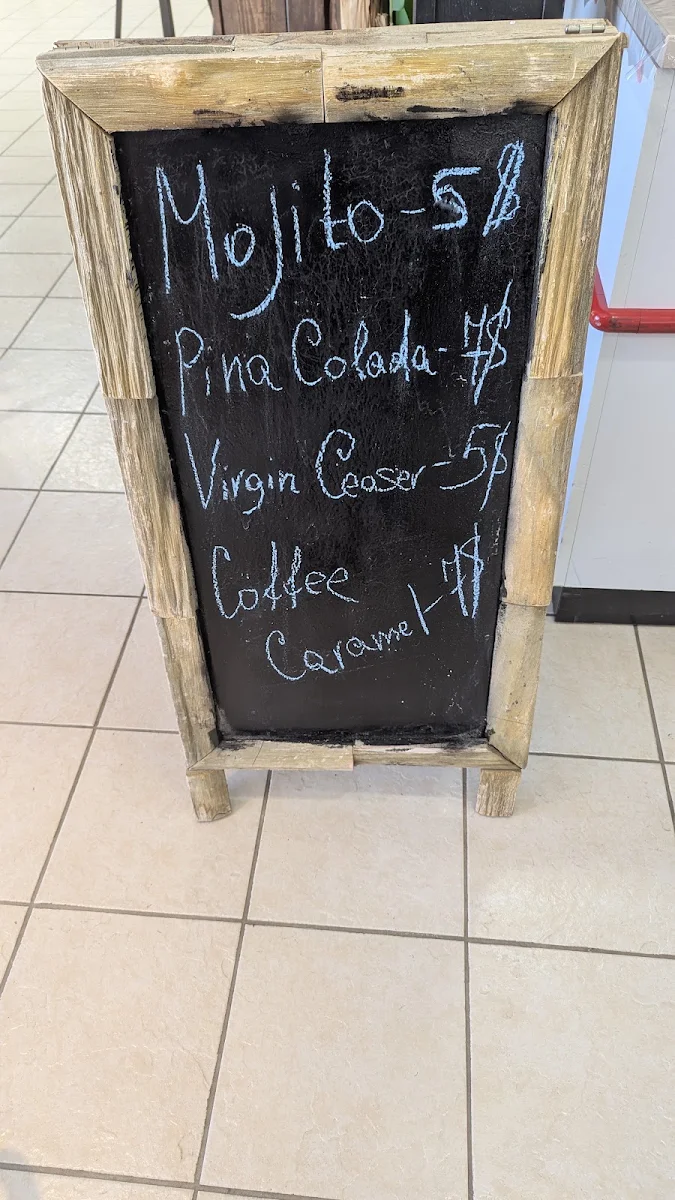 Mojito - 5$
Pina Colada - 7$
Virgin Ceaser - 5$
Coffee
Caramel - 7$